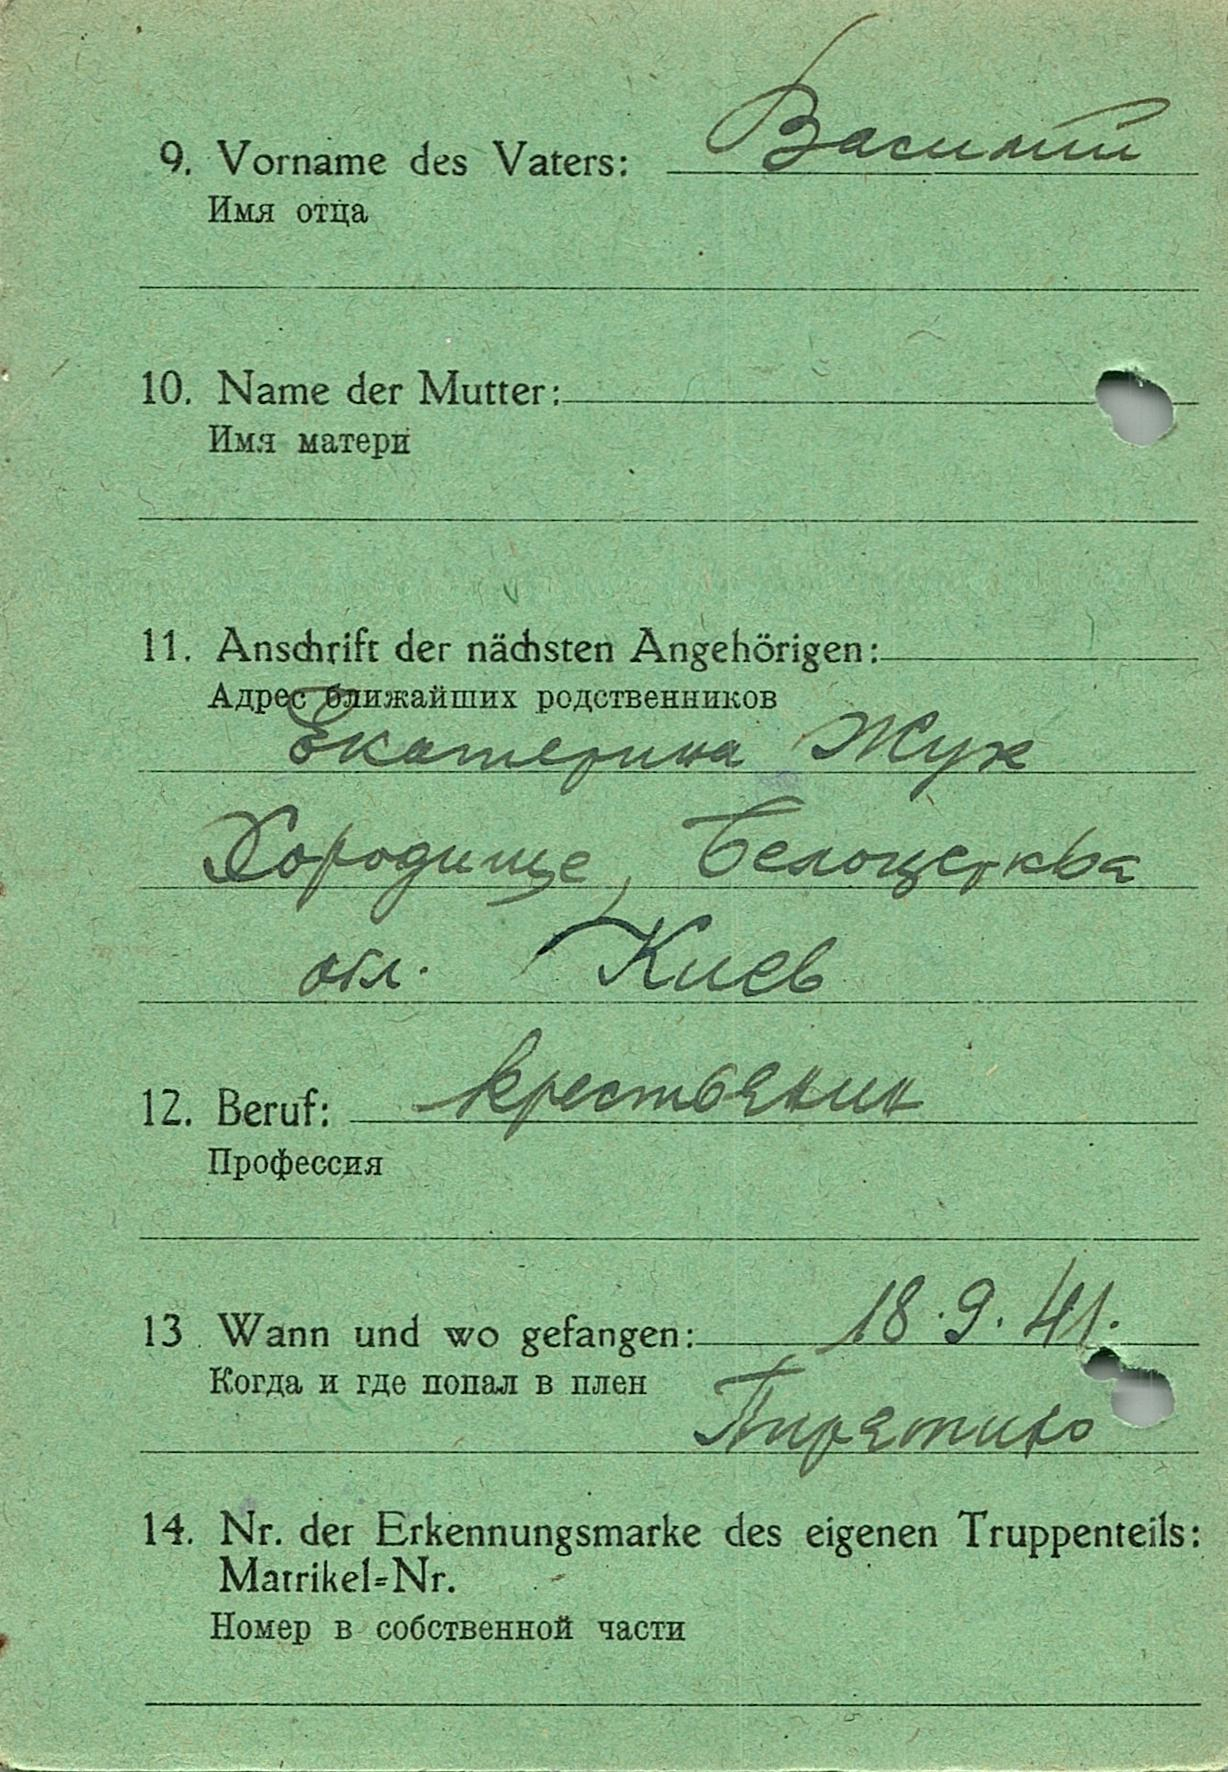 9. Vorname des Vaters: Василий
Имя отца
10. Name der Mutter:
Имя матери
11. Anschrift der nächsten Angehörigen:
Адрес ближайших родственников
Екатерина Жук
Хородище, Белоцерква
обл. Киев
12. Beruf: крестьянин
Профессия
13 Wann und wo gefangen: 18.9.41.
Когда и где попал в плен
Пирятино
14. Nr. der Erkennungsmarke des eigenen Truppenteils:
Matrikel=Nr.
Номер в собственной части